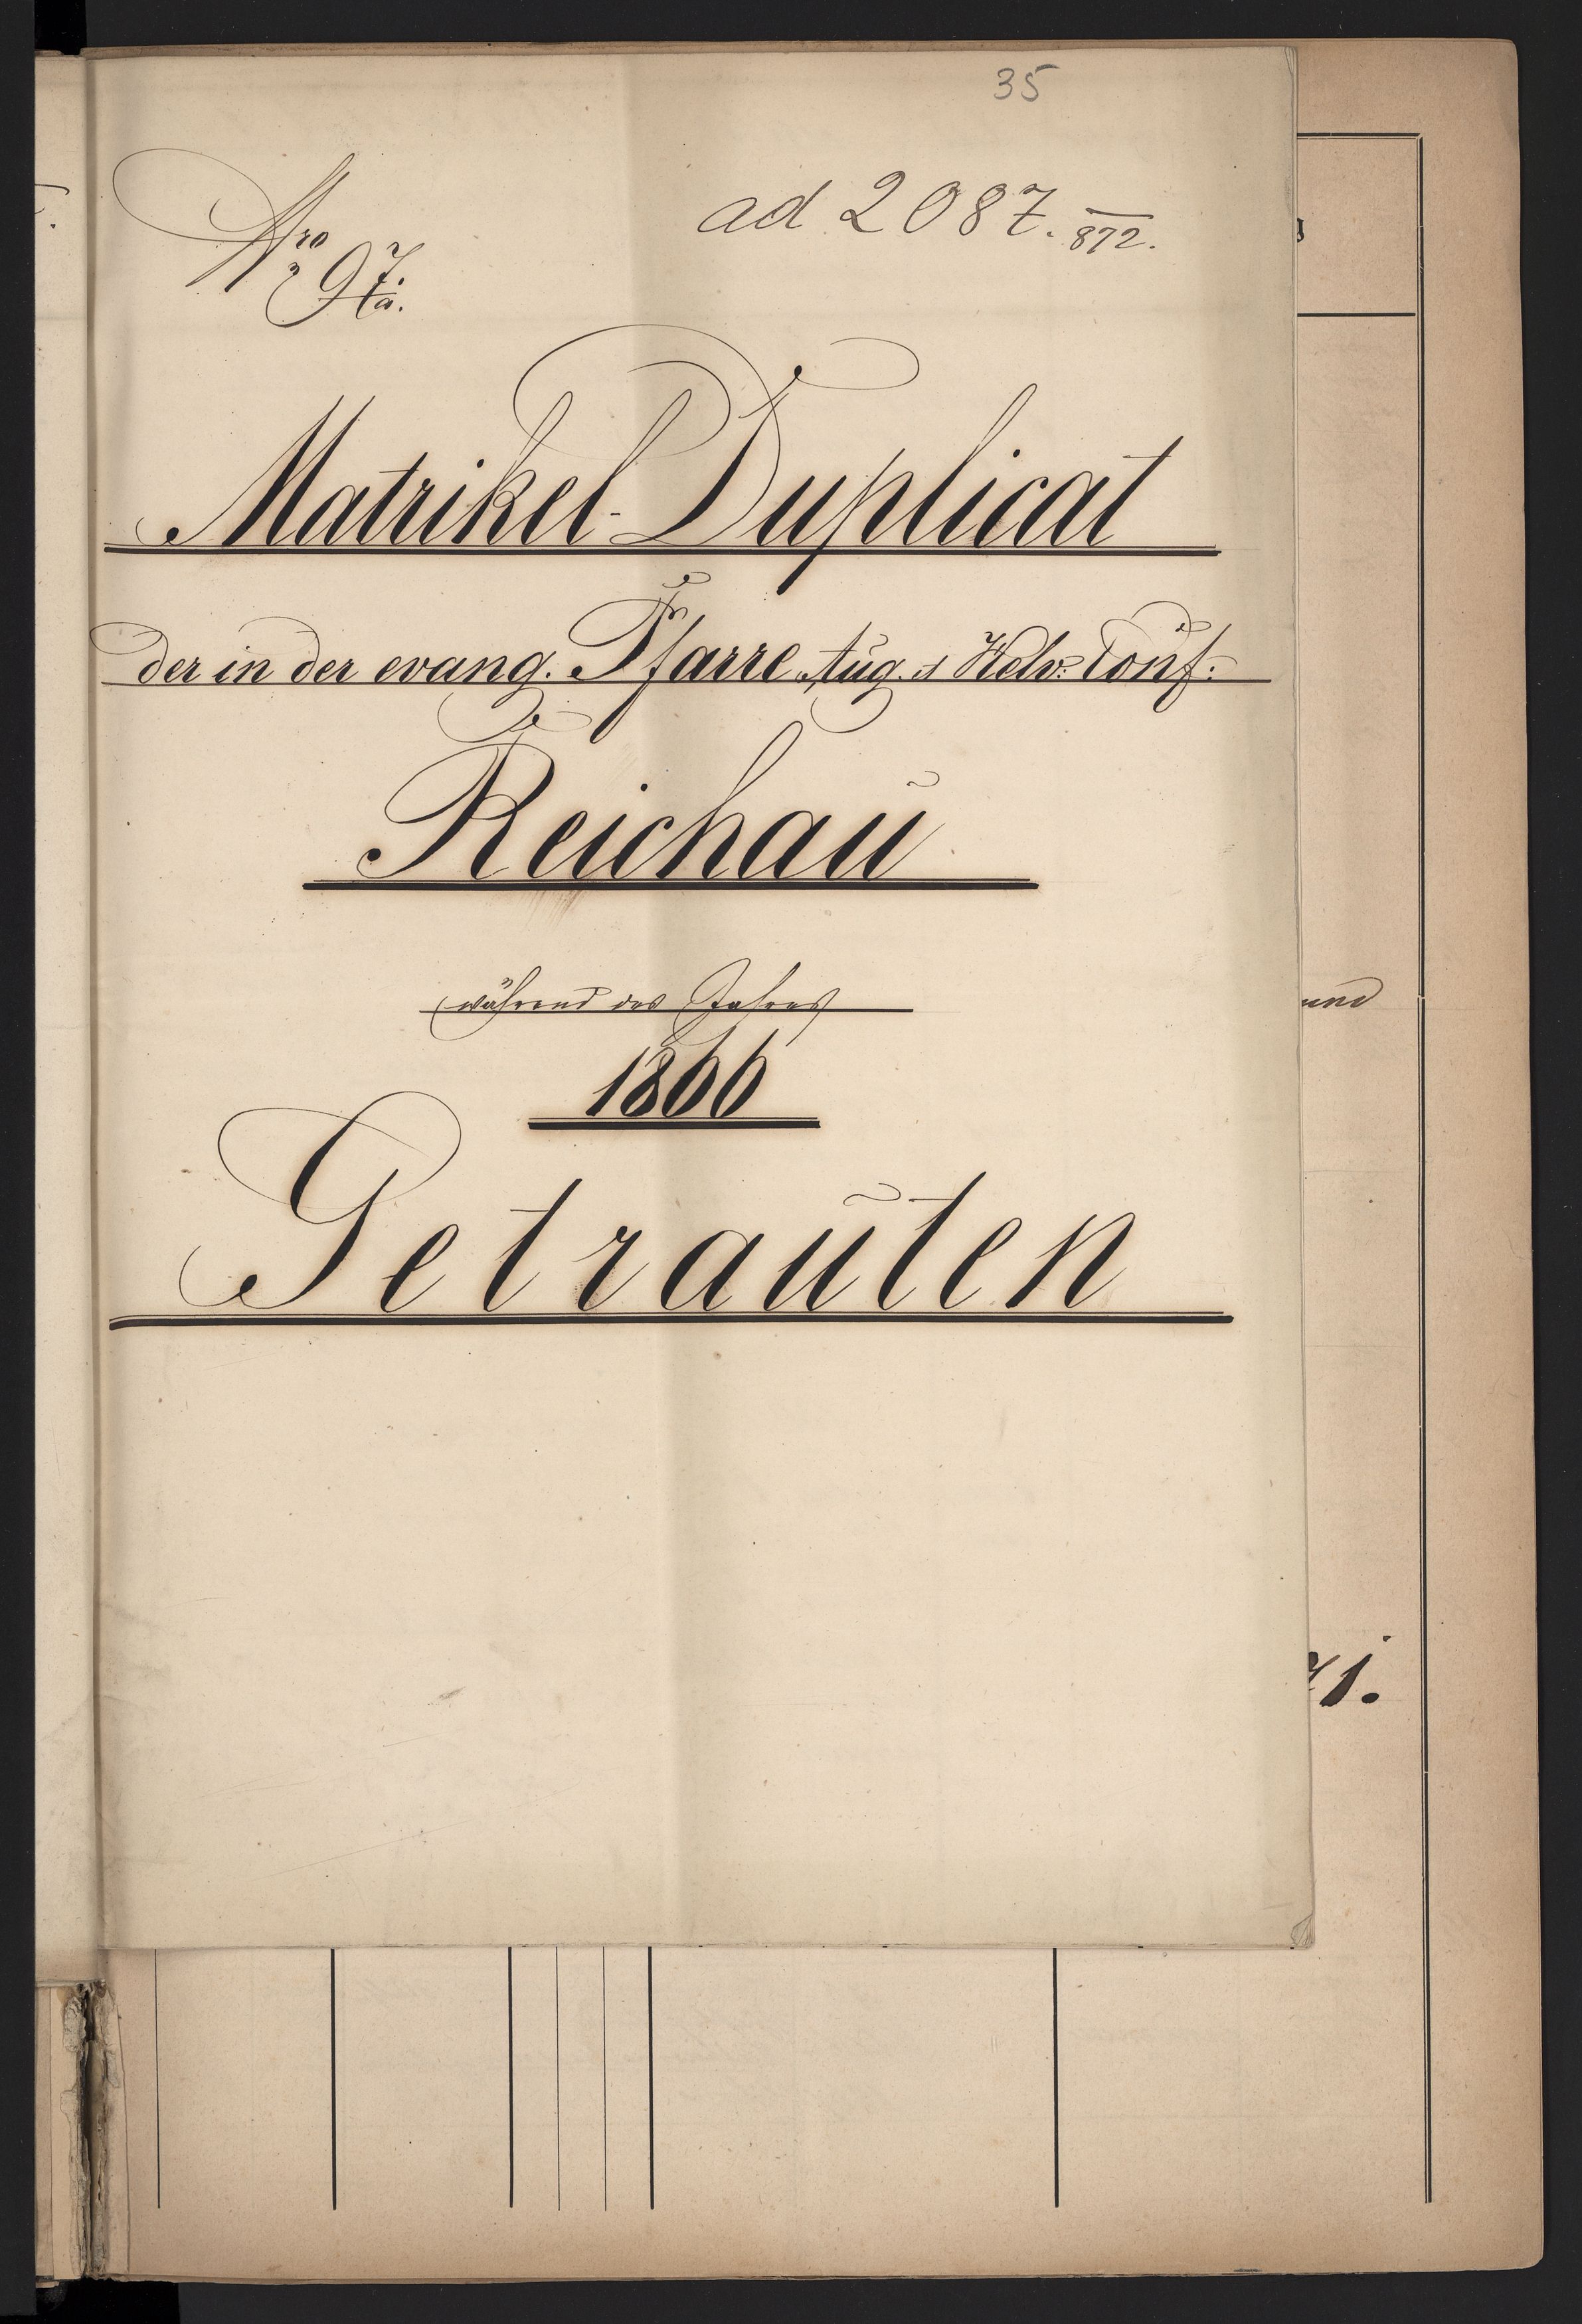 35
Nro 97/a.
ad 2087. 872.
Matrikel-Duplicat
der in der evang. Pfarre Aug. & Helv. Conf:
Reichau
während des Jahres
1866
Getrauten
und
71.